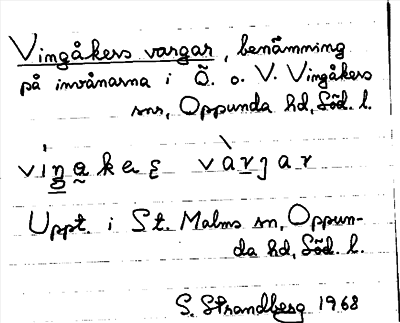 Vingåkers vargar, benämning
på invånarna i Ö. o. V. Vingåkers
snr, Oppunda hd, Söd. l.
vi̇ŋakeʂ vàrjar
Uppt. i St. Malms sn, Oppun-
da hd, Söd. l.
S. Strandberg 1968